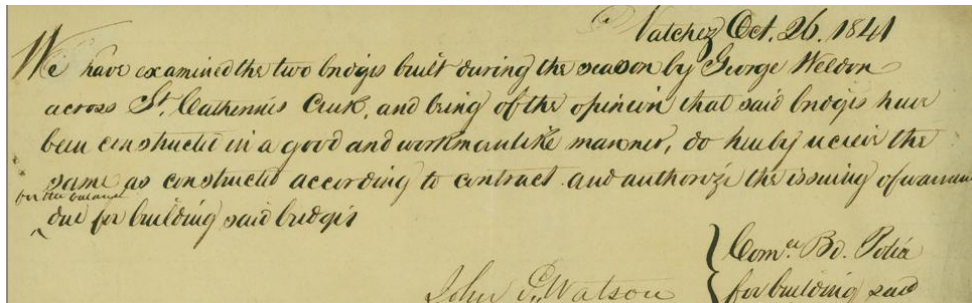 Natchez Oct. 26. 1841
We have examined the two bridges built during the season by George Weldon
across St. Catherines Creek, and being of the opinion that said bridges have
been constructed in a good and workmanlike manner, do hereby receive the
same as constructed according to contract and authorize the issuing of
for the balance
due for building said bridges
Comee Bd. Police
John Watson for building said